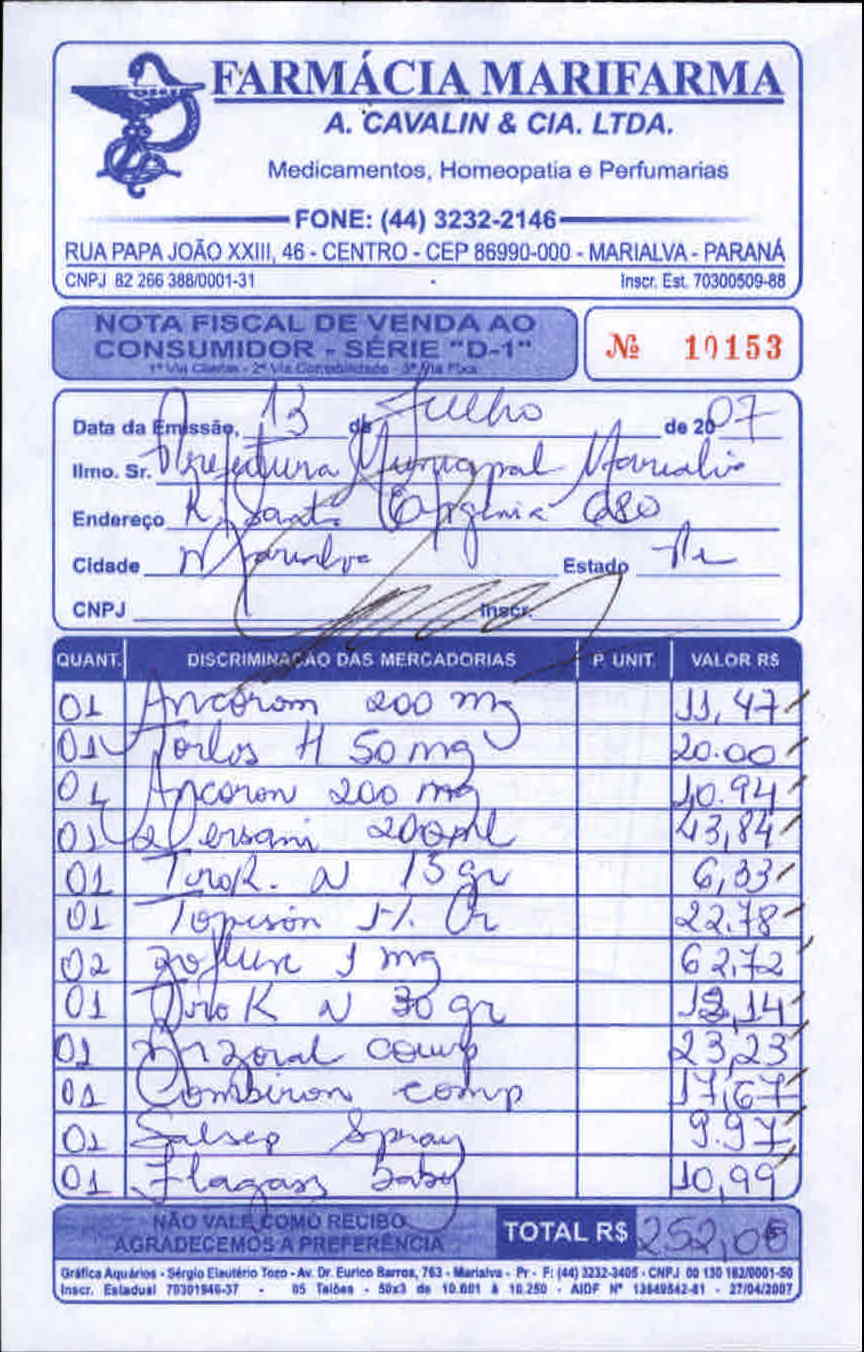 FARMÁCIA MARIFARMA
A. CAVALIN & CIA. LTDA.
Medicamentos, Homeopatia e Perfumarias
FONE: (44) 3232-2146
RUA PAPA JOÃO XXIII, 46 - CENTRO - CEP 86990-000 - MARIALVA - PARANÁ
CNPJ 82 266 388/0001-31 Inscr. Est. 70300509-88
NOTA FISCAL DE VENDA AO
CONSUMIDOR - SÉRIE "D-1"
1ª Via Cliente - 2ª Via Contabilidade - 3ª Via Fixa
Nº 10153
Data da Emissão, 13 de Julho de 2007
Ilmo. Sr. Prefeitura Municipal Marialva
Endereço R. Santa Efigenia 680
Cidade Marialva Estado Pr
CNPJ Inscr.
QUANT. DISCRIMINAÇÃO DAS MERCADORIAS P. UNIT. VALOR R$
01 Ancoron 200 mg 11,47
01 Torlos H 50 mg 20.00
01 Ancoron 200 mg 10.94
01 Dersani 200ml 43,84
01 Trok. N 15 gr 6,33
01 Topison 1% Cr 22.78
02 Zoflux 1 mg 62,72
01 Trok N 30 gr 12,14
01 Nizoral comp 23,23
01 Combiron comp 17,67
01 Salsep Spray 9.97
01 Flagass baby 10,99
NÃO VALE COMO RECIBO
AGRADECEMOS A PREFERÊNCIA
TOTAL R$ 252,08
Gráfica Aquários - Sérgio Eleutério Tozo - Av. Dr. Eurico Barros, 763 - Marialva - Pr - F: (44) 3232-3405 - CNPJ 00 130 162/0001-50
Inscr. Estadual 70301946-37 - 05 Talões - 50x3 de 10.001 à 10.250 - AIDF Nº 13849542-81 - 27/04/2007